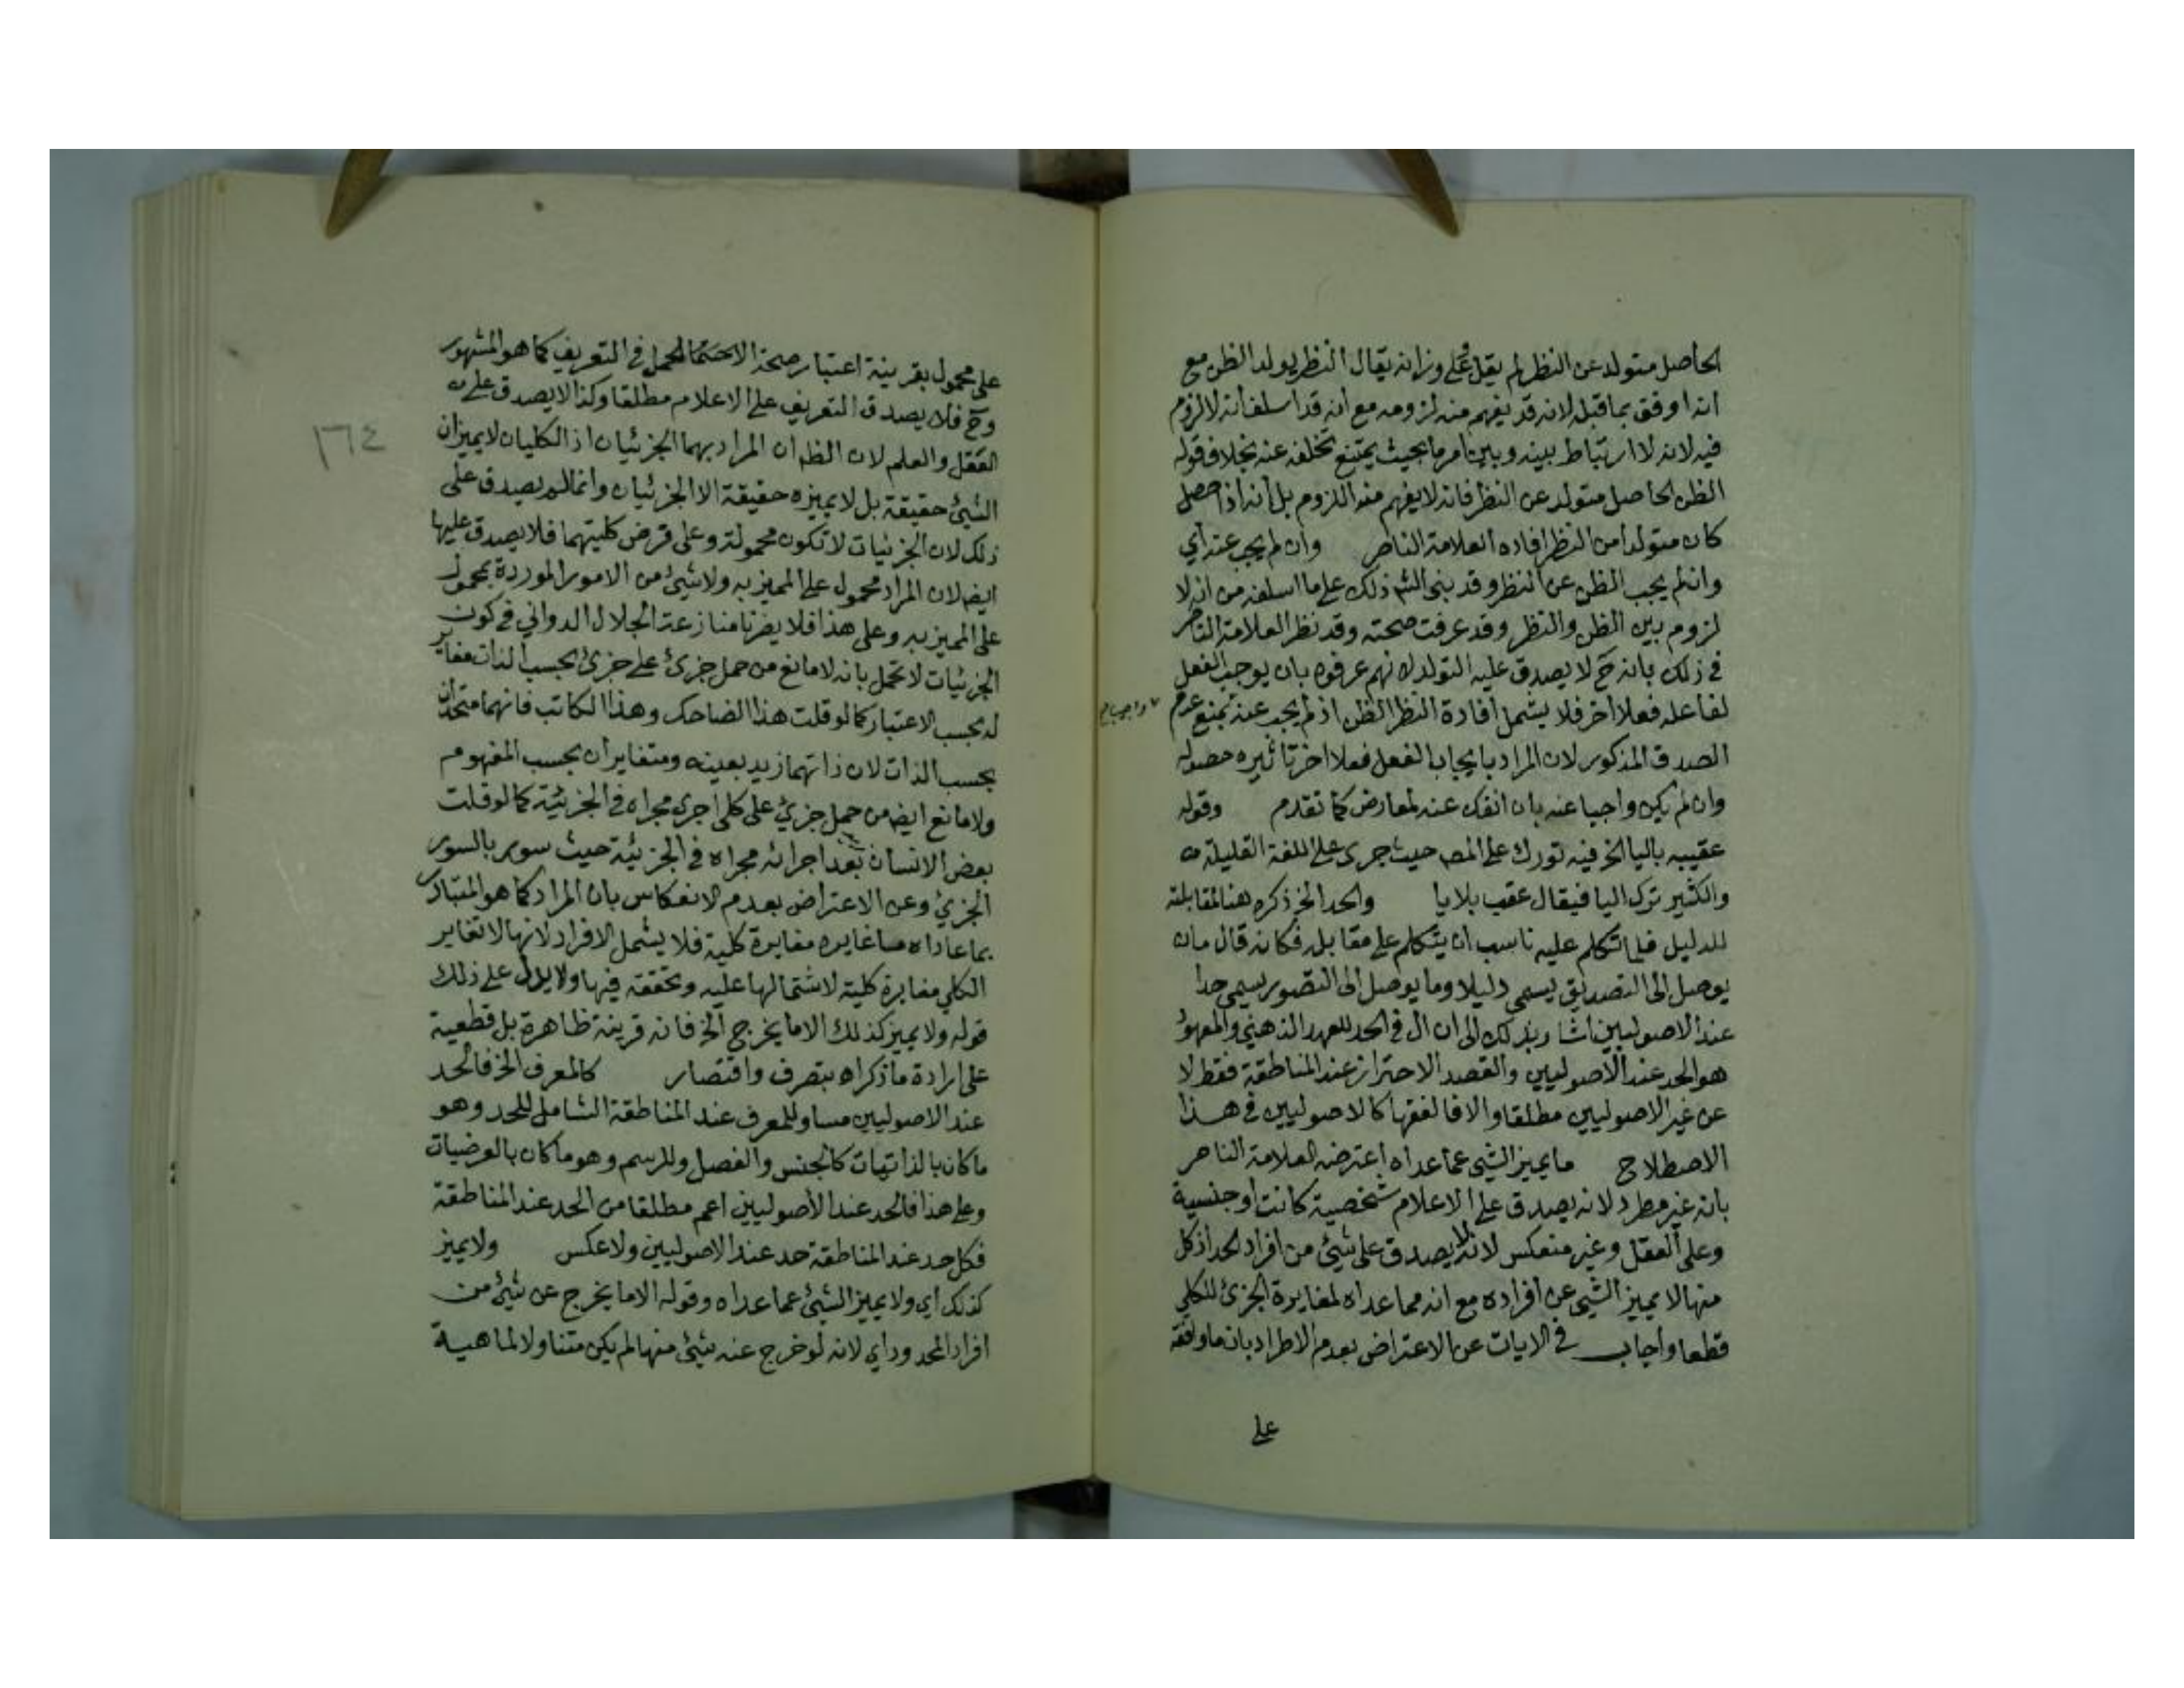 الحاصل متولد عن النظر لم يقل على وزانه يقال النظر يولد الظن مع
انه اوفق بما قبله لانه قد يفهم منه لزومه مع انه قد اسلف انه لا لزوم
فيه لانه لا ارتباط بينه وبين امر ما بحيث يمتنع تخلفه عنه بخلاف قوله
الظن الحاصل متولد عن النظر فانه لا يفهم منه اللزوم بل انه اذا حصل
كان متولدا من النظر افاده العلامة الناصر وان لم يجب عنه أي
وان لم يجب الظن عن النظر وقد بنى الش ذلك على ما اسلفه من انه لا
لزوم بين الظن والنظر وقد عرفت صحته وقد نظر العلامة الناصر
في ذلك بانه ح لا يصدق عليه التولد لانهم عرفوه بان يوجب الفعل
لفاعله فعلا اخر فلا يشمل افادة النظر الظن اذ لم يجب عنه بمنع عدم
الصدق المذكور لان المراد بايجاب الفعل فعلا اخر تاثيره حصوله
وان لم يكن واجبا عنه بان انفك عنه لمعارض كما تقدم وقوله
عقيبه باليا الخ فيه تورك على المص حيث جرى على اللغة القليلة
والكثير ترك اليا فيقال عقب بلا يا والحد الخ ذكره هنا لمقابلته
للدليل فلما تكلم عليه ناسب ان يتكلم على مقابله فكانه قال مان
يوصل الى التصديق يسمى دليلا وما يوصل الى التصور يسمى حدا
عند الاصوليين اشار بذلك الى ان ال في الحد للعهد الذهني والمعهود
هو الحد عند الأصوليين والقصد الاحتراز عند المناطقة فقط لا
عن غير الاصوليين مطلقا والا فالفقها كالاصوليين في هذا
الاصطلاح ما يميز الشي عما عداه اعترضه العلامة الناصر
بانه غير مطرد لانه يصدق على الاعلام شخصية كانت او جنسية
وعلى العقل وغير منعكس لانه لا يصدق على شيئ من افراد الحد اذ كل
منها لا يميز الشي عن افراده مع انه مما عداه لمغايرة الجزئ للكلي
قطعا واجاب في الايات عن الاعتراض بعدم الاطراد بان ما واقعة
على
على محمول بقرينة اعتبار صحة الاحتمال لمحمل في التعريف كما هو المشهور
وح فلا يصدق التعريف على الاعلام مطلقا وكذا لا يصدق على
العقل والعلم لان الظ ان المراد بهما الجزئيان اذ الكليان لا يميزان
الشيئ حقيقة بل لا يميزه حقيقة الا الجزئيان وانما لم يصدق على
ذلك لان الجزئيات لا تكون محمولة وعلى فرض كليتهما فلا يصدق عليها
ايضا لان المراد محمول على المميز به ولا شئ من الامور الموردة بمحمول
على المميز به وعلى هذا فلا يضرنا منازعة الجلال الدواني في كون
الجزئيات لا تحمل بانه لا مانع من حمل جزئ على جزئ بحسب الذات مغاير
له بحسب الاعتبار كما لو قلت هذا الضاحك وهذا الكاتب فانهما متحدان
بحسب الذات لان ذاتهما زيد بعينه ومتغايران بحسب المفهوم
ولا مانع ايضا من حمل جزئ على كلى اجرى مجراه في الجزئية كما لو قلت
بعض الانسان بعد اجرائه مجراه في الجزئية حيث سور بالسور
الجزئ وعن الاعتراض بعدم الانعكاس بان المراد كما هو المتبادر
بما عداه ما غايره مغايرة كلية فلا يشمل الافراد لانها لا تغاير
الكلي مغايرة كلية لاشتمالها عليه وتحققه فيها ولا يدل على ذلك
قوله ولا يميز كذلك الا ما يخرج الخ فانه قرينة ظاهرة بل قطعية
على ارادة ما ذكراه بتصرف واقتصار كالمعرف الخ فالحد
عند الاصوليين مساو للمعرف عند المناطقة الشامل للحد وهو
ما كان بالذاتيات كالجنس والفصل وللرسم وهو ما كان بالعرضيات
وعلى هذا فالحد عند الأصوليين اعم مطلقا من الحد عند المناطقة
فكل حد عند المناطقة حد عند الاصوليين ولا عكس ولا يميز
كذلك أي ولا يميز الشيئ عما عداه وقوله الا ما يخرج عن شيئ من
افراد المحدود اي لانه لو خرج عنه شيئ منها لم يكن متناولا لماهية
١٦٤